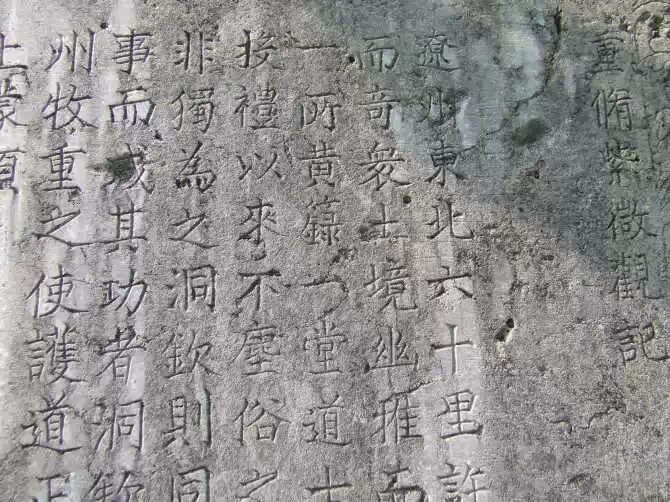 重脩紫微觀記
遼州東北六十里許
而奇衆土境幽雅而
一所黃籙一堂道士
禮以來不塵俗之
非獨為之洞欽則同
事而成其功者洞欽
州牧重之使護道正
上蒙